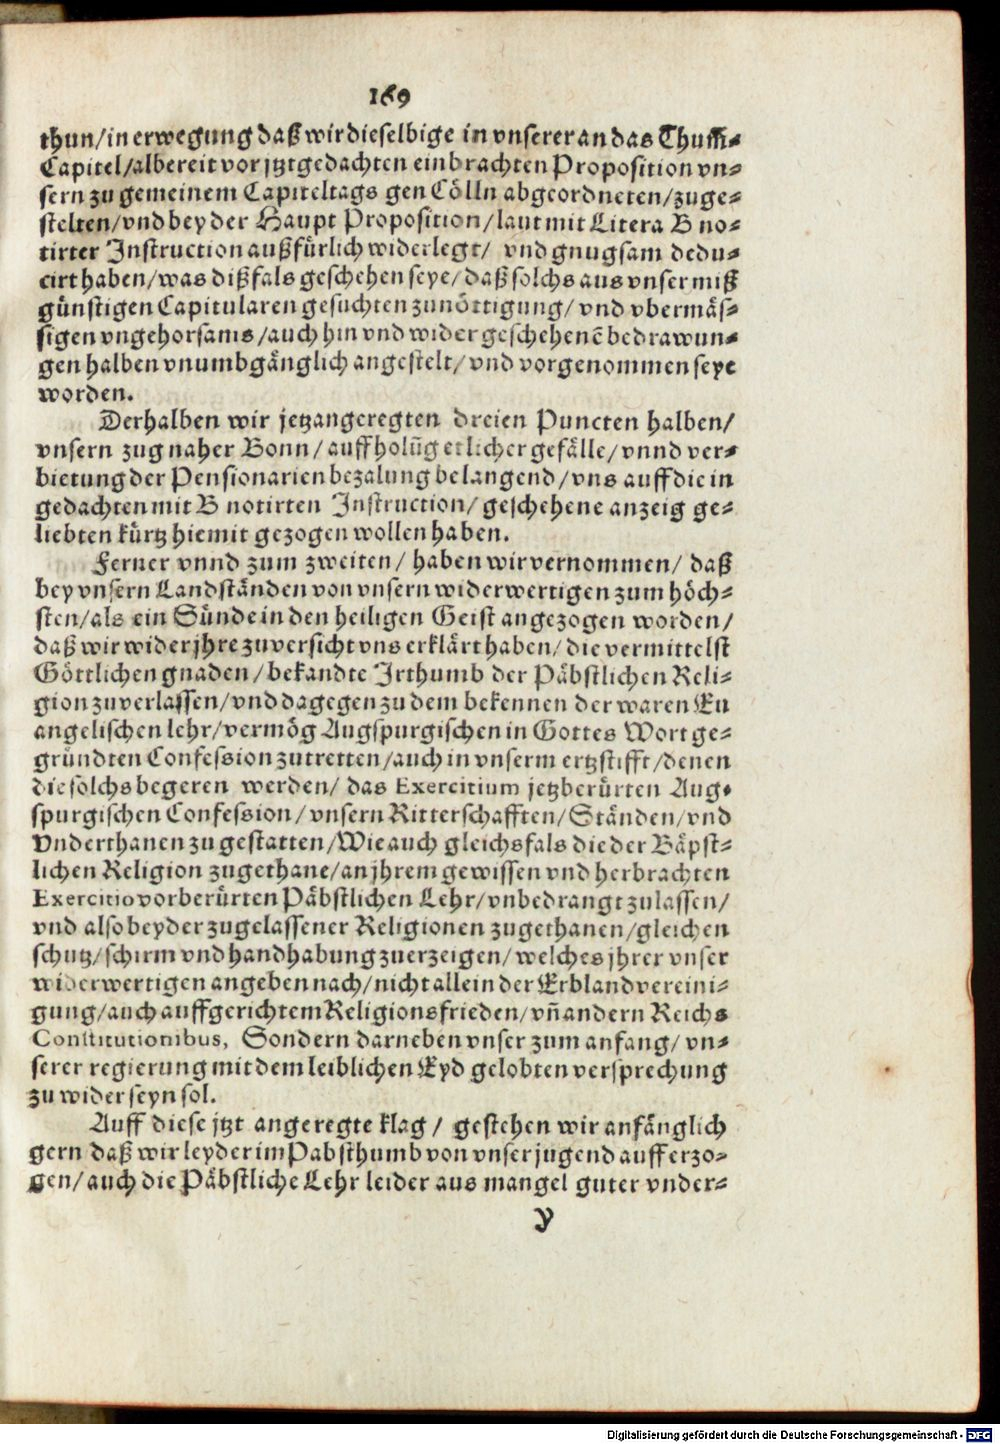 169
thun/in erwegung daß wir dieselbige in vnserer an das Thum-
Capitel/albereit vor jtztgedachten einbrachten Proposition vn-
sern zu gemeinem Capiteltags gen Cölln abgeordneten/zuge-
stelten/vnd bey der Haupt Proposition/laut mit Litera B no-
tirter Instruction außfürlich widerlegt/ vnd gnugsam dedu-
cirt haben/was dißfals geschehen seye/daß solchs aus vnser miß
günstigen Capitularen gesuchten zunöttigung/vnd vbermäs-
sigen vngehorsams/auch hin vnd wider geschehenē bedrawun-
gen halben vnumbgänglich angestelt/vnd vorgenommen seye
worden.
Derhalben wir jetzangeregten dreien Puncten halben/
vnsern zug naher Bonn/auffholūg etlicher gefälle/vnnd ver-
bietung der Pensionarien bezalung belangend/vns auff die in
gedachten mit B notirten Instruction/geschehene anzeig ge-
liebten kürtz hiemit gezogen wollen haben.
Ferner vnnd zum zweiten/ haben wir vernommen/ daß
bey vnsern Landständen von vnsern widerwertigen zum höch-
sten/als ein Sünde in den heiligen Geist angezogen worden/
daß wir wider jhre zuversicht vns erklärt haben/die vermittelst
Göttlichen gnaden/bekandte Irthumb der Päbstlichen Reli-
gion zuverlassen/vnd dagegen zu dem bekennen der waren Eu
angelischen lehr/vermög Augspurgischen in Gottes Wort ge-
gründten Confession zutretten/auch in vnserm ertzstifft/denen
die solchs begeren werden/ das Exercitium jetzberürten Aug-
spurgischen Confession/vnsern Ritterschafften/Ständen/vnd
Vnderthanen zu gestatten/Wie auch gleichsfals die der Bäpst-
lichen Religion zugethane/an jhrem gewissen vnd herbrachten
Exercitio vorberürten Päbstlichen Lehr/vnbedrangt zulassen/
vnd also beyder zugelassener Religionen zugethanen/gleichen
schutz/schirm vnd handhabung zuerzeigen/welches jhrer vnser
widerwertigen angeben nach/nicht allein der Erblandvereini-
gung/auch auffgerichtem Religionsfrieden/vñ andern Reichs
Constitutionibus, Sondern darneben vnser zum anfang/ vn-
serer regierung mit dem leiblichen Eyd gelobten versprechung
zu wider seyn sol.
Auff diese jtzt angeregte klag/ gestehen wir anfänglich
gern daß wir leyder im Pabsthumb von vnser jugend aufferzo-
gen/auch die Päbstliche Lehr leider aus mangel guter vnder-
Y
Digitalisierung gefördert durch die Deutsche Forschungsgemeinschaft - DFG